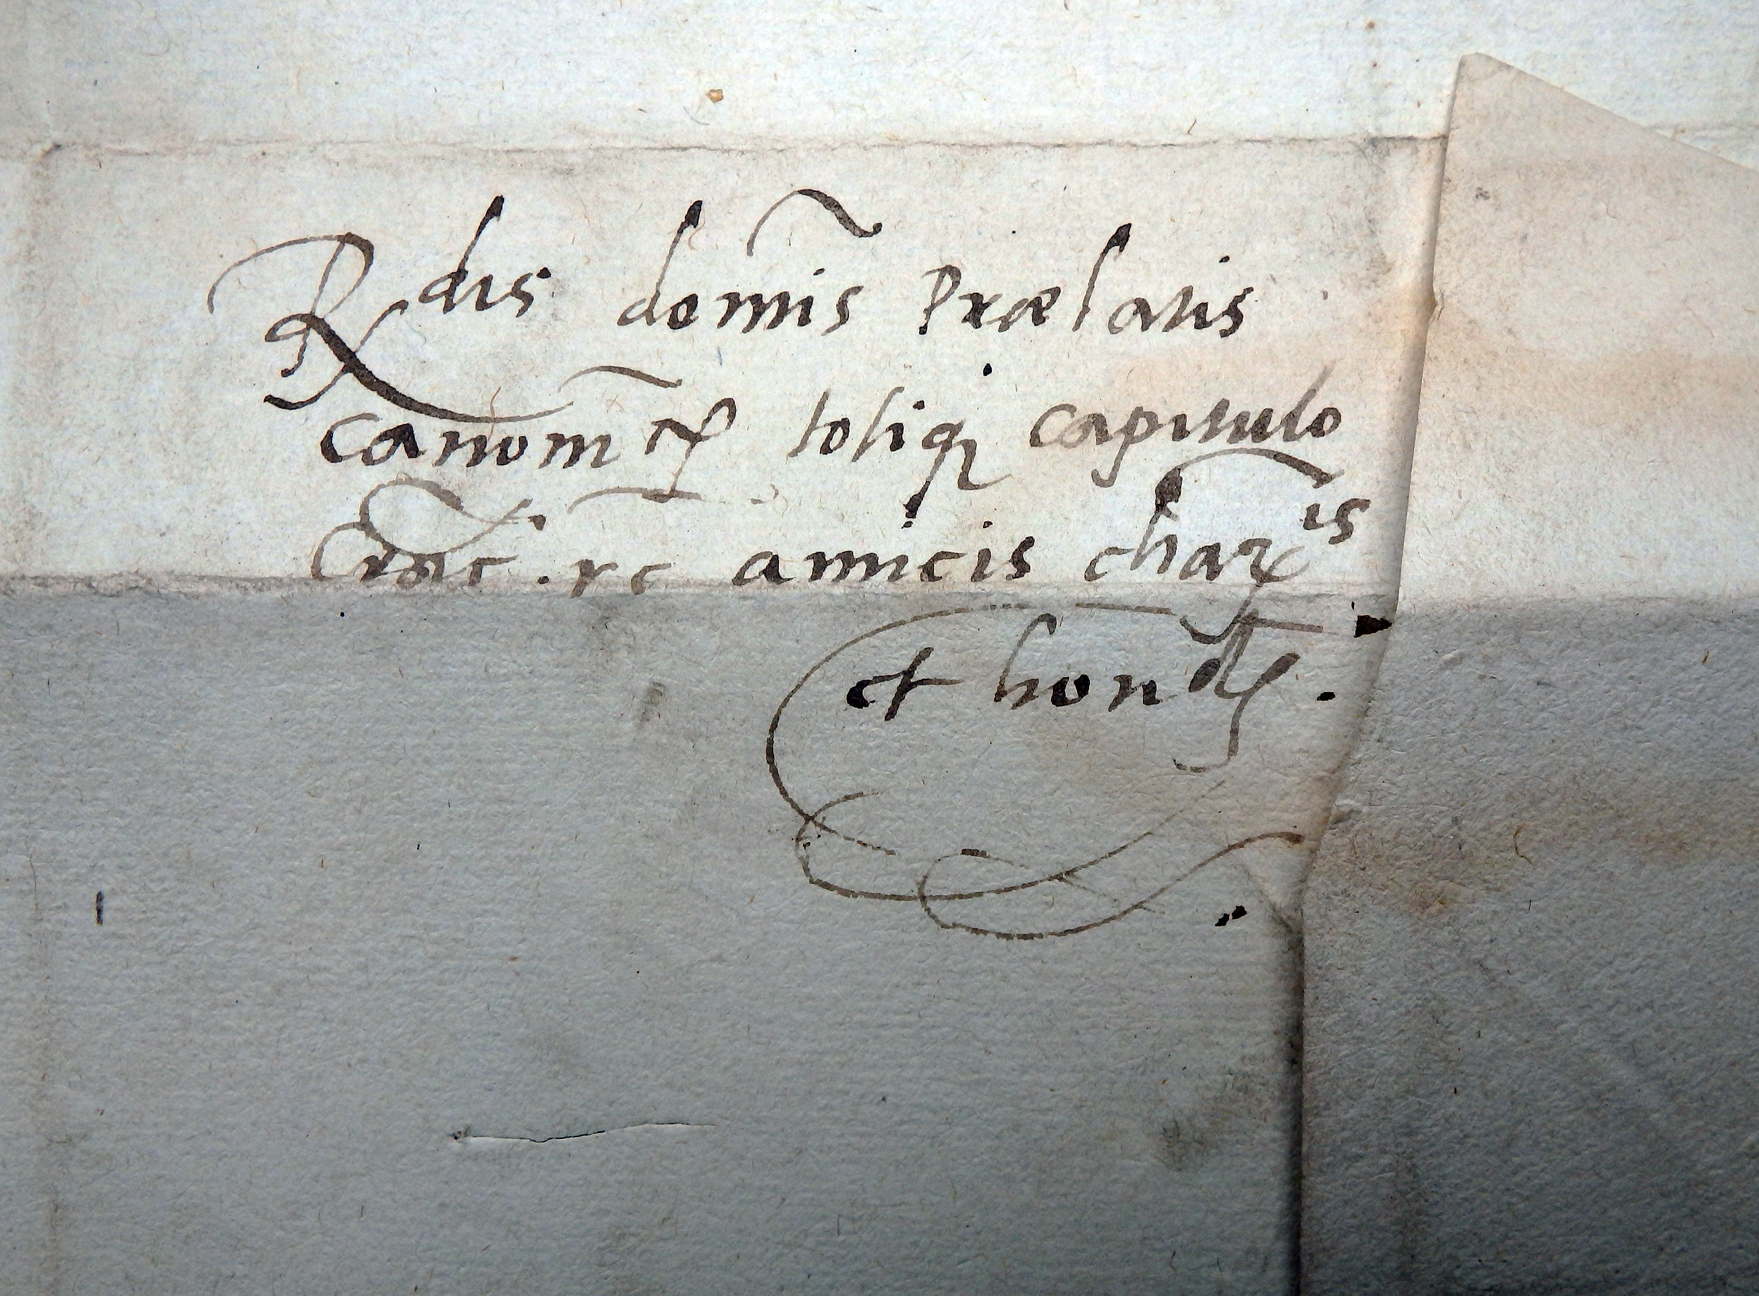 Rdis domīs Prælatis
canonicis totiq; capitulo
Crac. &c amicis char.is
et hon.dis.